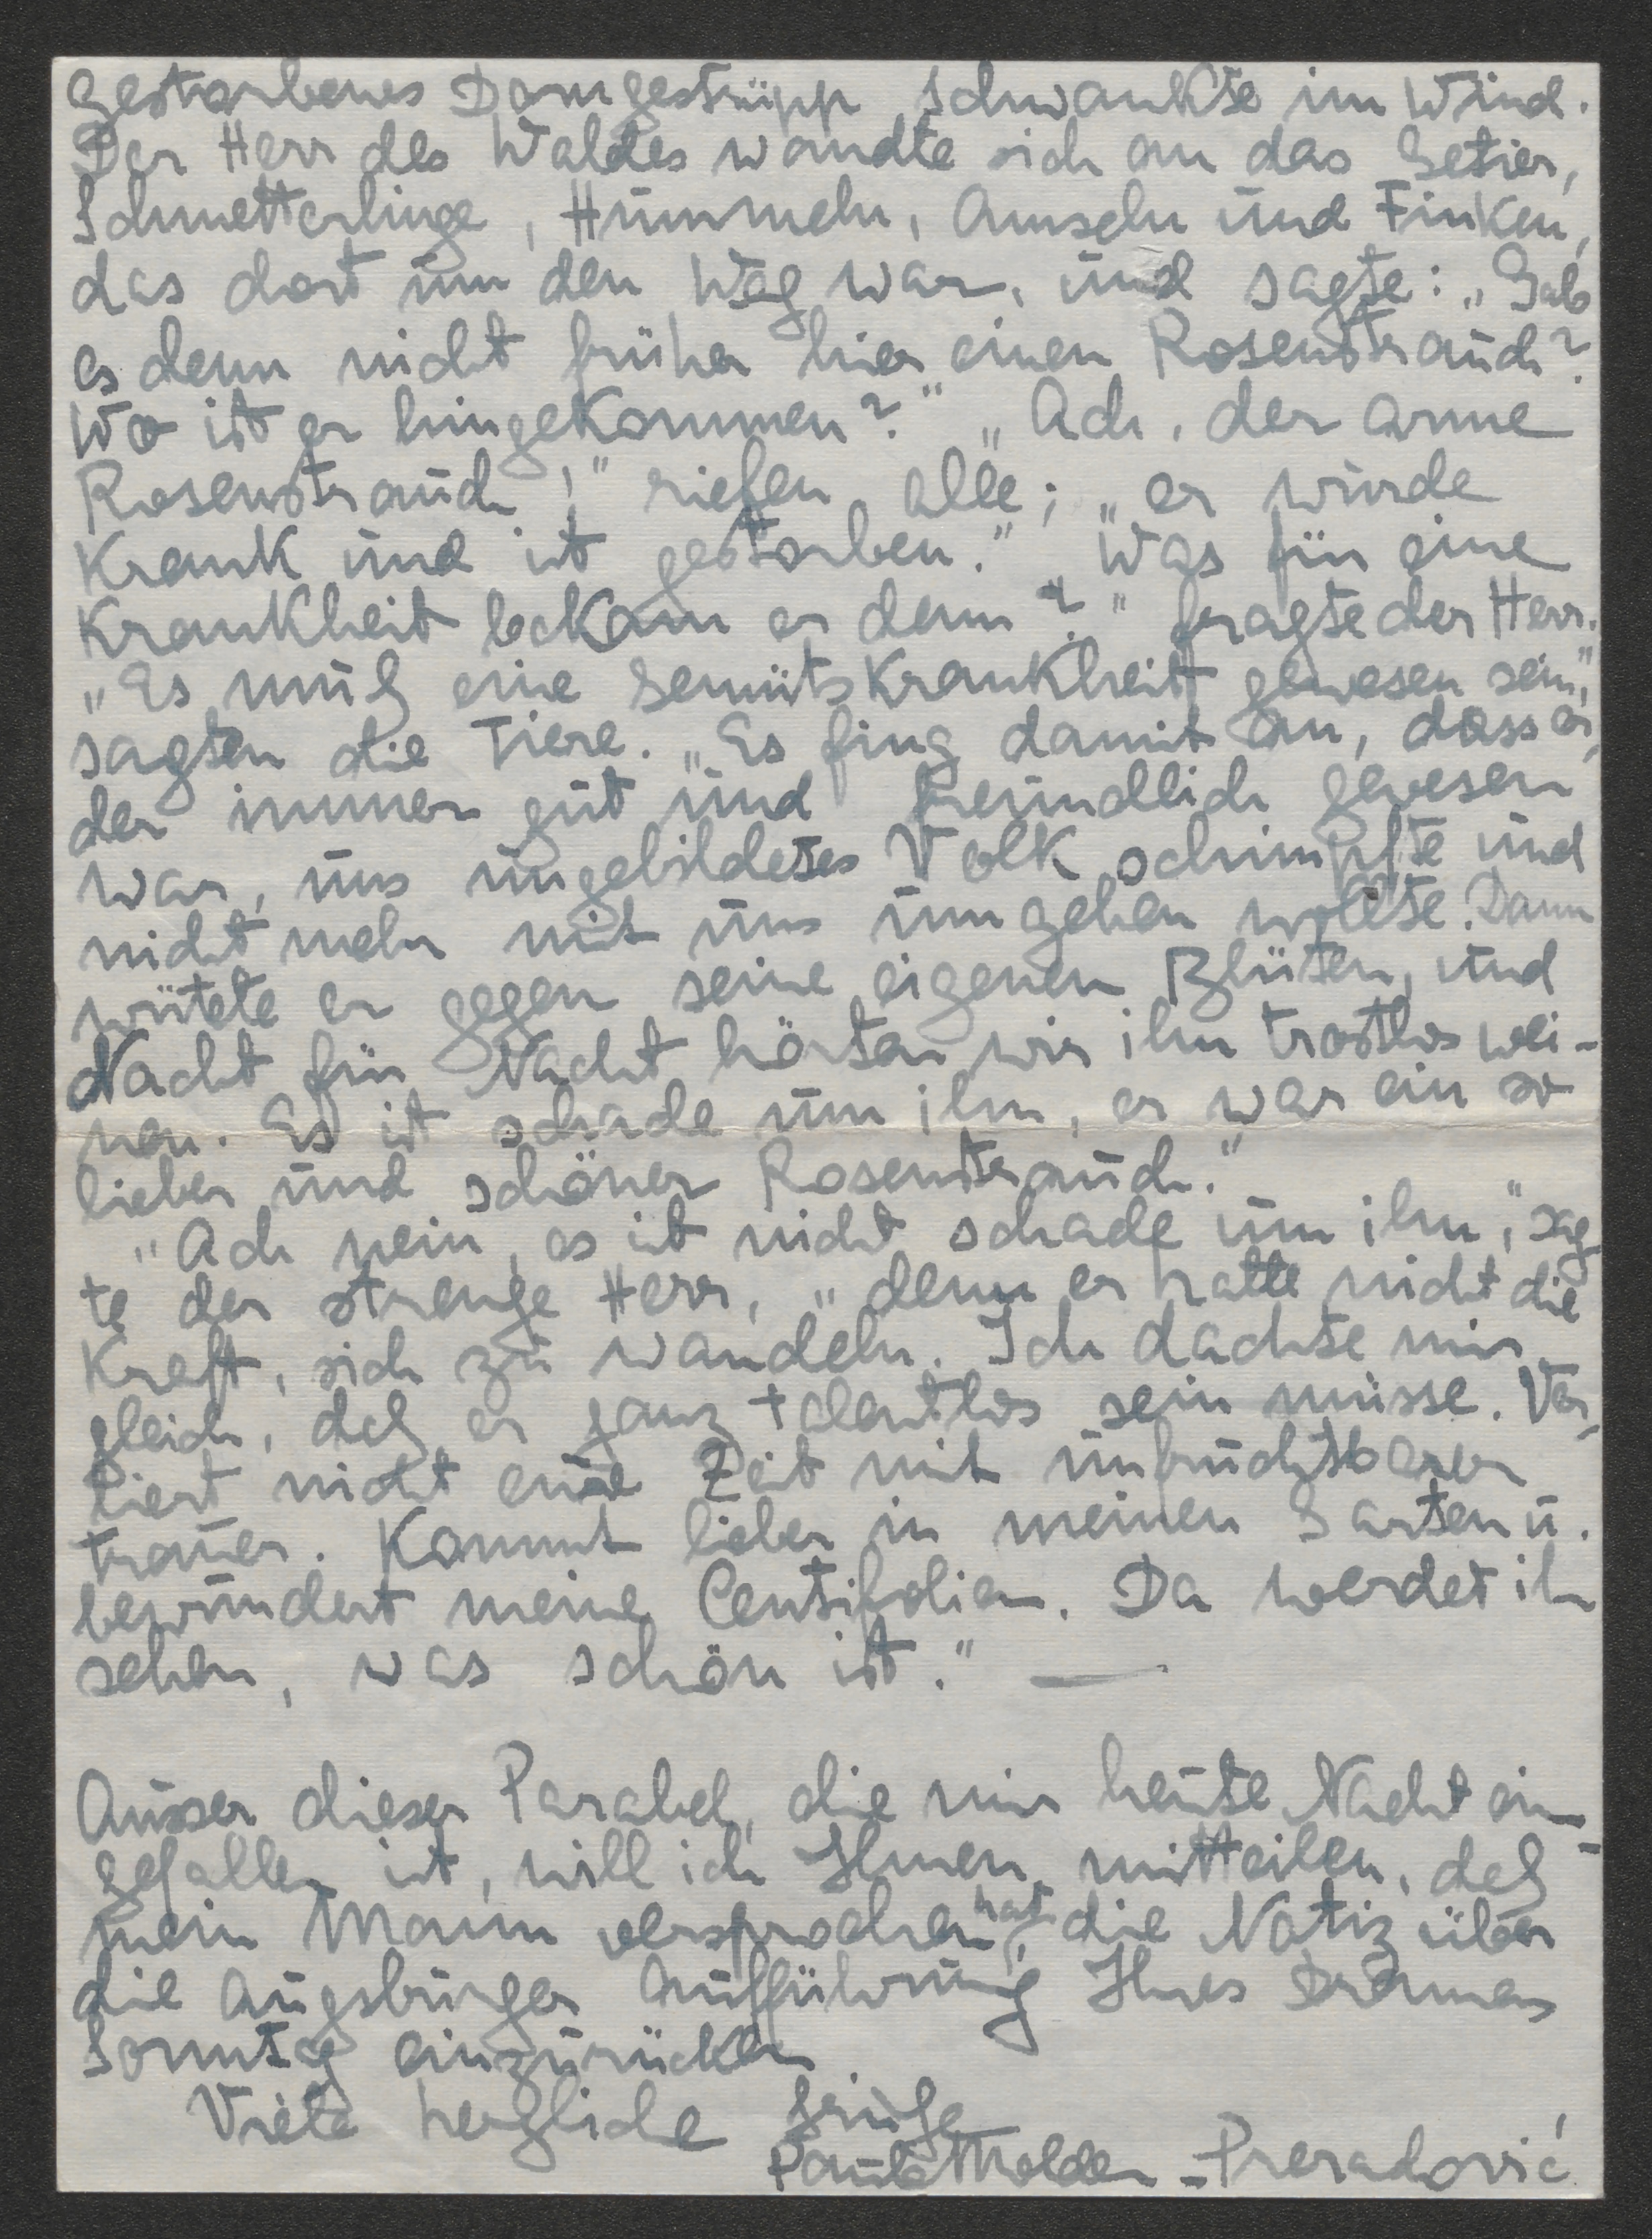 gestorbenes Dorngestrüpp schwankte im Wind.
Der Herr des Waldes wandte sich an das Getier,
Schmetterlinge, Hummeln, Amseln und Finken,
das dort um den Weg war, und sagte: „Gab
es denn nicht früher hier einen Rosenstrauch?
Wo ist er hingekommen?" „Ach, der arme
Rosenstrauch!" riefen alle; „er wurde
krank und ist gestorben." „Was für eine
Krankheit bekam er denn?" fragte der Herr.
„Es muß eine Gemütskrankheit gewesen sein,"
sagten die Tiere. „Es fing damit an, dass er,
der immer gut und freundlich gewesen
war, uns ungebildetes Volk schimpfte und
nicht mehr mit uns umgehen wollte. Dann
wütete er gegen seine eigenen Blüten, und
Nacht für Nacht hörten wir ihn trostlos wei-
nen. Es ist schade um ihn, er war ein so
lieber und schöner Rosenstrauch."
„Ach nein, es ist nicht schade um ihn," sag
te der strenge Herr, „denn er hatte nicht die
Kraft, sich zu wandeln. Ich dachte mir
gleich, daß er ganz talentlos sein müsse. Ver-
liert nicht eure Zeit mit unfruchtbarer
Trauer. Kommt lieber in meinen Garten u.
bewundert meine Centifolien. Da werdet ihr
sehen, was schön ist." —
Ausser dieser Parabel, die mir heute Nacht ein-
gefallen ist, will ich Ihnen mitteilen, daß
mein Mann versprochen hat, die Notiz über
die Augsburger Aufführung Ihres Dramas
Sonntag einzurücken.
Viele herzliche Grüße
Paula Molden-Preradović